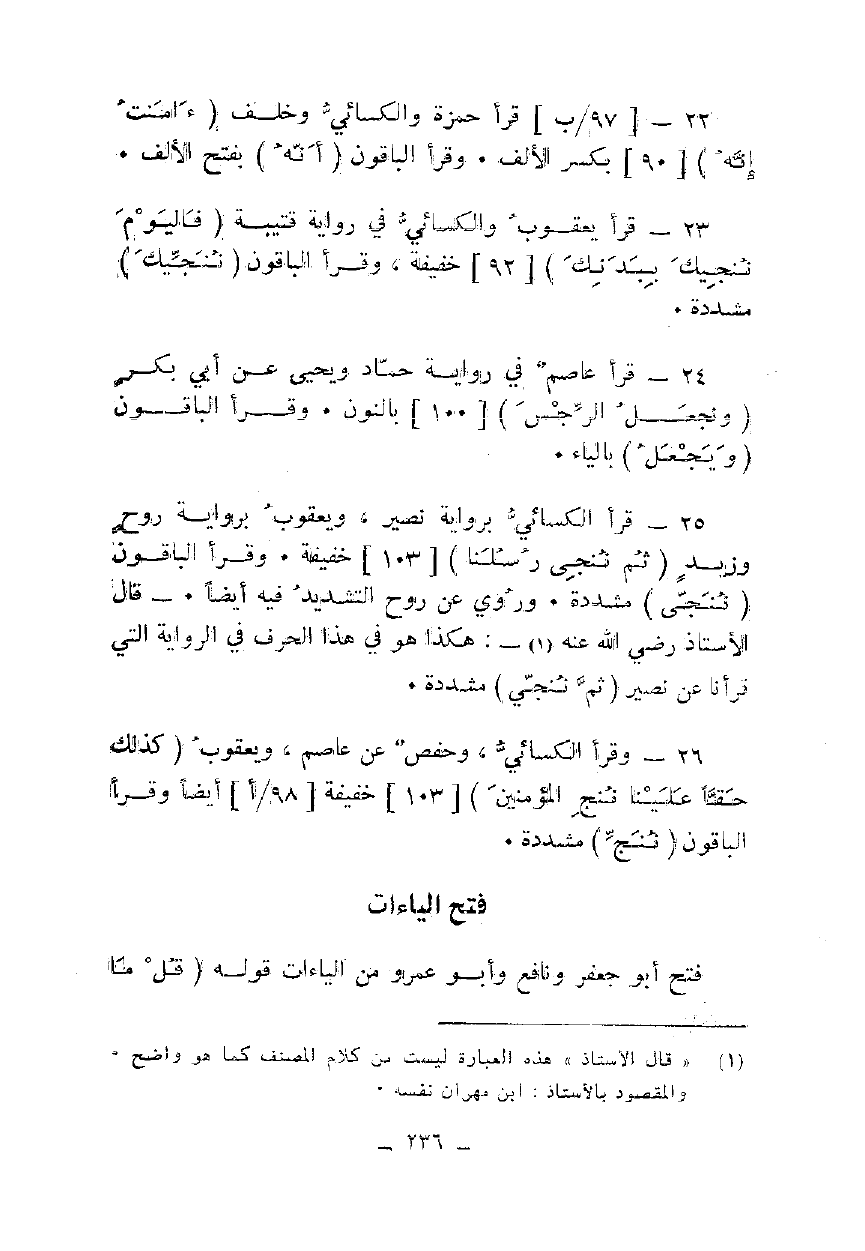 ٢٢ — [ ٩٧/ب ] قرأ حمزة والكسائيُّ وخلـــف ( ءَامَنتُ
إِنَّهُ ) [ ٩٠ ] بكسر الألف ٠ وقرأ الباقون ( أَنَّهُ ) بفتح الألف ٠
٢٣ — قرأ يعقـــوبُ والكسائيُّ في رواية قتيبـــة ( فَاليَوْمَ
نُنجِيكَ بِبَدَنِكَ ) [ ٩٢ ] خفيفة ، وقـــرأ الباقون ( نُنَجِّيكَ )
مشـــددة ٠
٢٤ — قرأ عاصمٌ في روايـــة حمّاد ويحيى عـــن أبي بكـــرٍ
( ونجعَـــلُ الرِّجْسَ ) [ ١٠٠ ] بالنون ٠ وقـــرأ الباقـــون
( وَيَجْعَلُ ) بالياء ٠
٢٥ — قرأ الكسائيُّ برواية نصير ، ويعقوبُ بروايـــة روحٍ
وزيـــدٍ ( ثُم نُنجِى رُسُلَنَا ) [ ١٠٣ ] خفيفة ٠ وقـــرأ الباقـــون
( نُنَجِّى ) مشددة ٠ ورُوي عن روح التشديدُ فيه أيضاً ٠ — قال
الأستاذ رضي الله عنه (١) — : هكذا هو في هذا الحرف في الرواية التي
قرأنا عن نصير ( ثمَّ نُنجِّي ) مشددة ٠
٢٦ — وقرأ الكسائيُّ ، وحفصٌ عن عاصم ، ويعقوبُ ( كذلك
حَقَّاً عَلَيْنا نُنجِ المؤمنينَ ) [ ١٠٣ ] خفيفة [ ٩٨/أ ] أيضاً وقـــرأ
الباقون ( نُنَجِّ ) مشددة ٠
فتح الياءات
فتح أبو جعفر ونافع وأبـــو عمرو من الياءات قولـــه ( قُلْ مَا
(١) « قال الأستاذ » هذه العبارة ليست من كلام المصنف كما هو واضح ٠
والمقصود بالأستاذ : ابن مهران نفسه ٠
— ٢٣٦ —